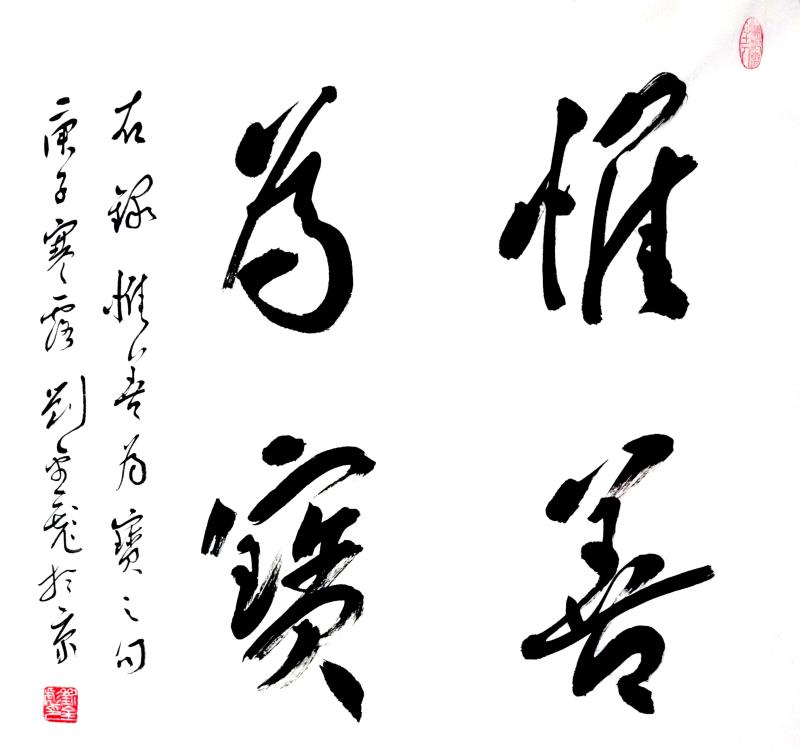 惟善
為寶
右錄惟善為寶之句
庚子寒露劉金彪於京